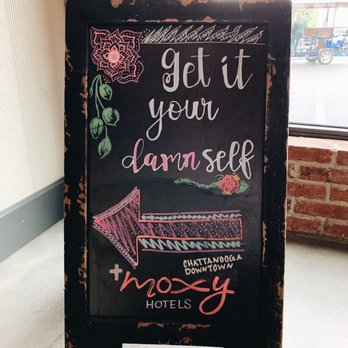 get it
your
damn self
CHATTANOOGA
DOWNTOWN
+ moxy
HOTELS